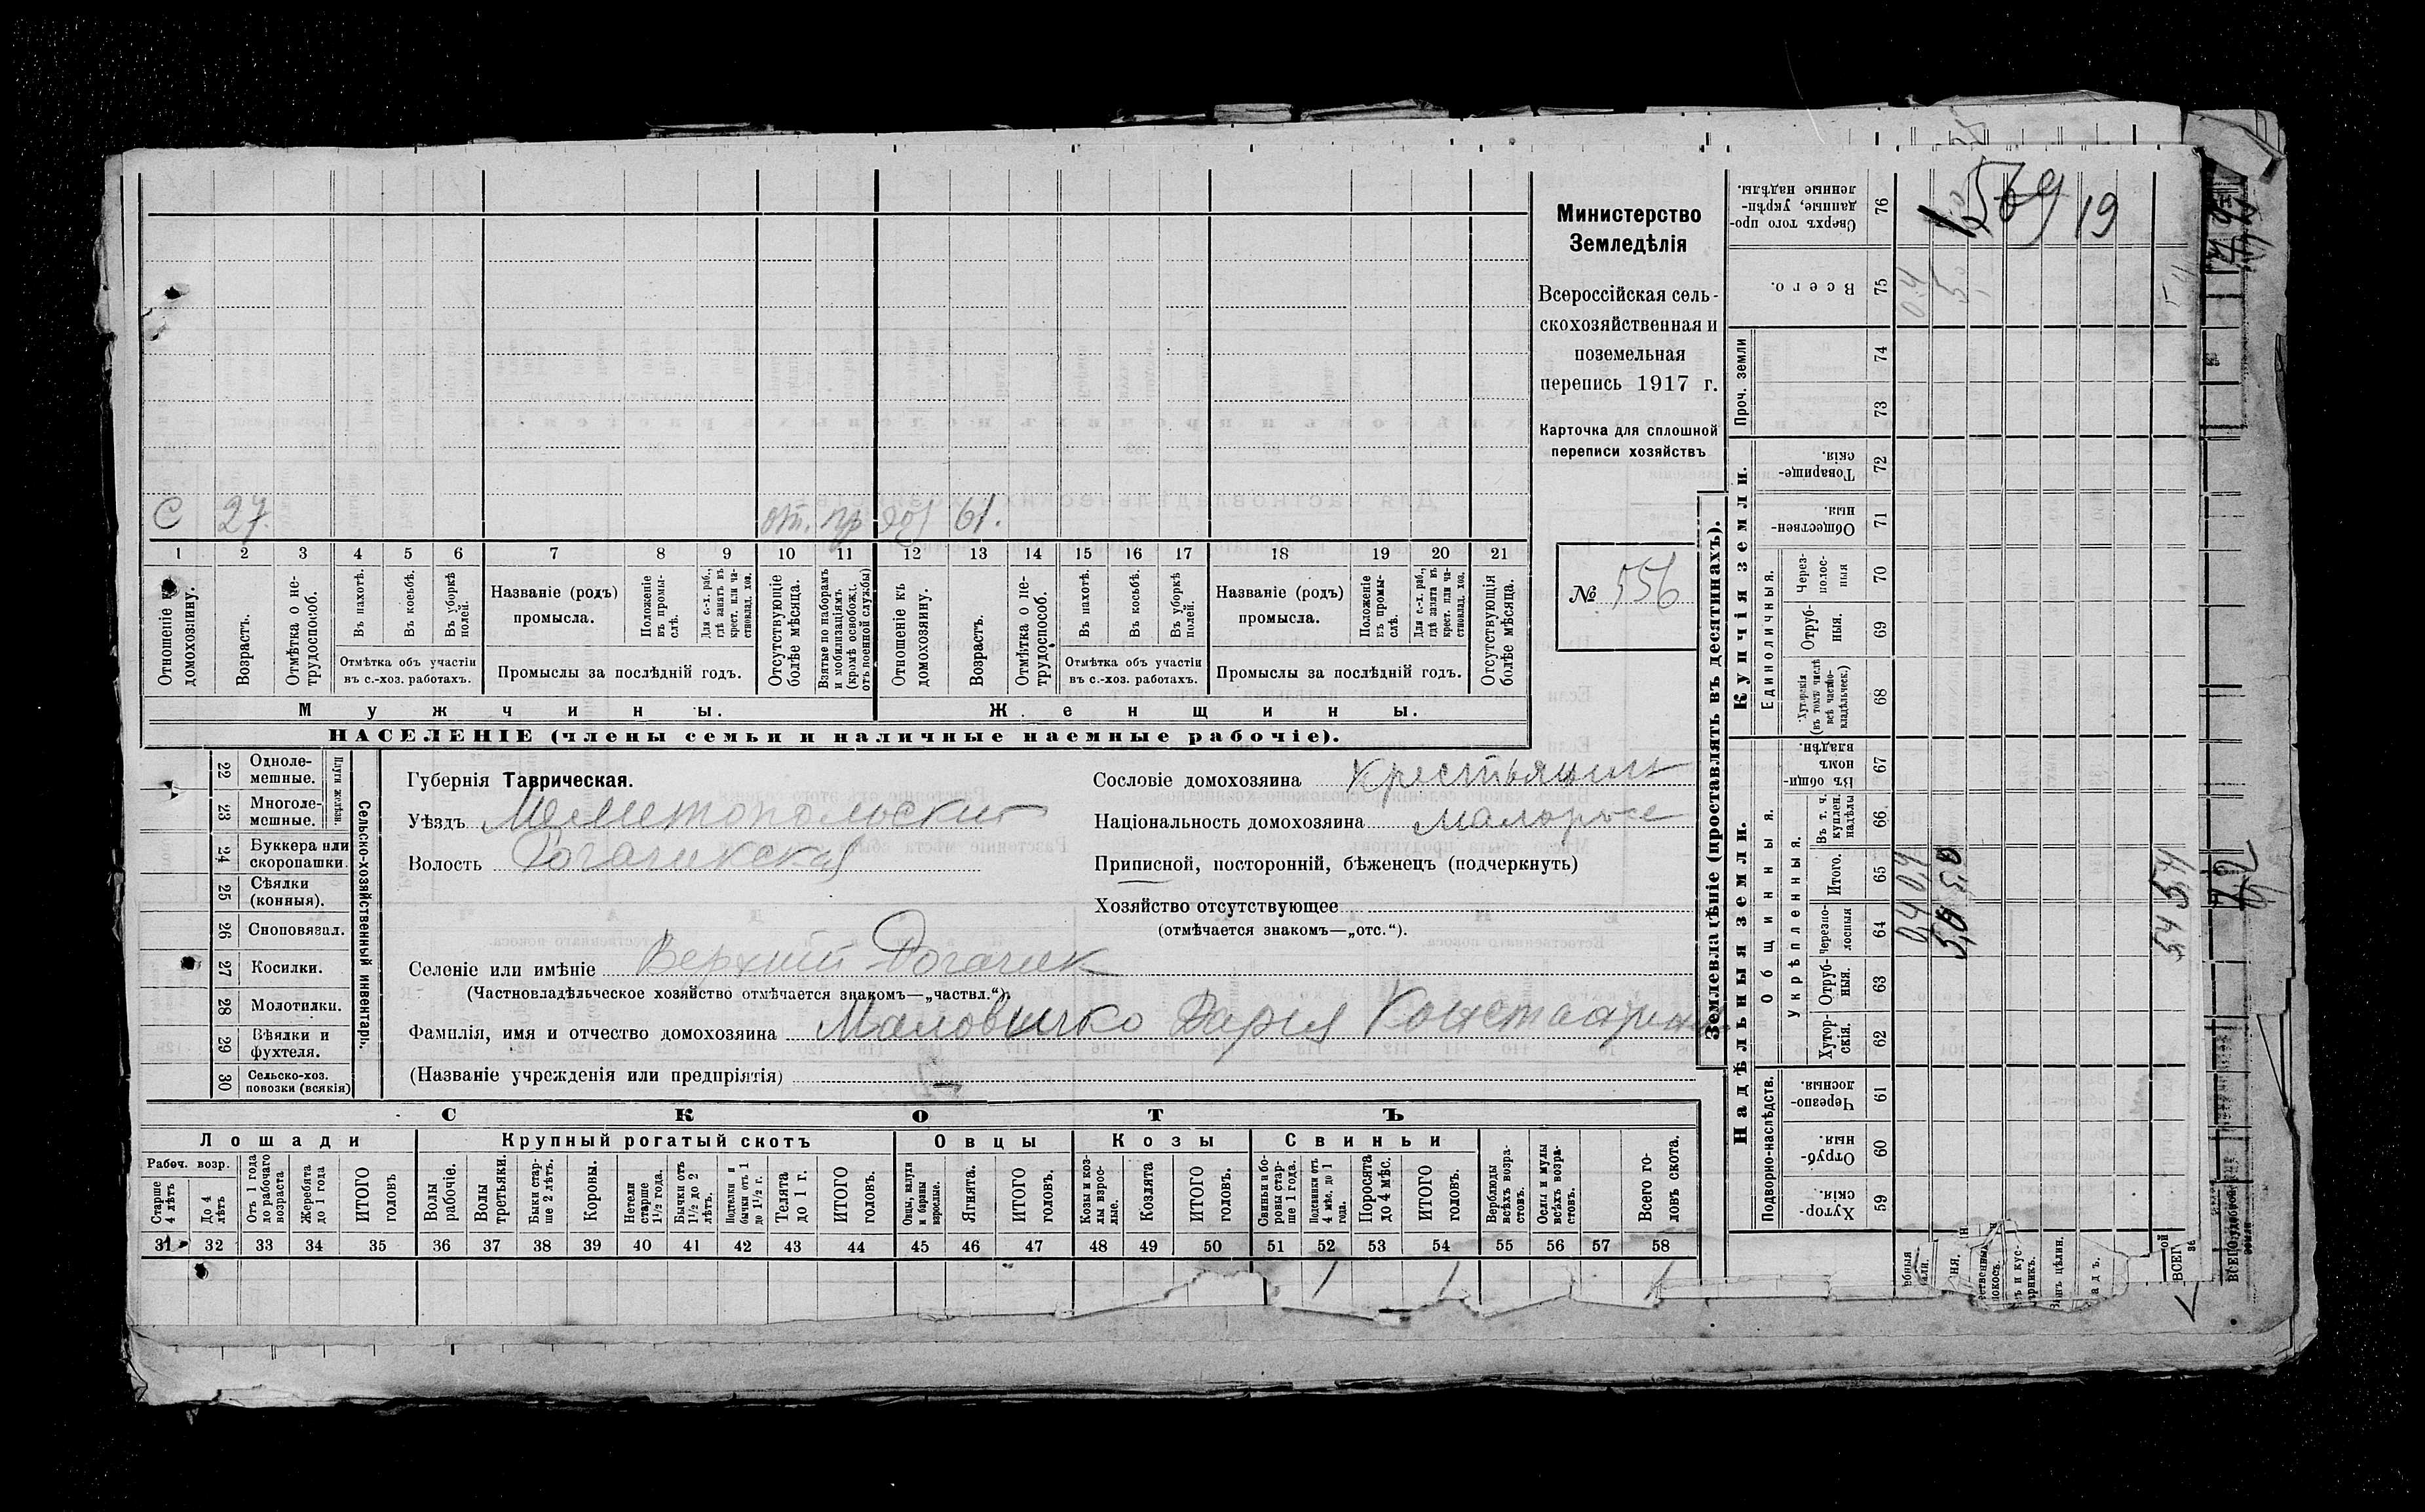 Министерство
Земледѣлія
Всероссійская сель-
скохозяйственная и
поземельная
перепись 1917 г.
Карточка для сплошной
переписи хозяйствъ
№ 556
С 27. от. пр дох 61.
1 2 3 4 5 6 7 8 9 10 11 12 13 14 15 16 17 18 19 20 21
Отношеніе къ домохозяину.
Возрастъ.
Отмѣтка о не-трудоспособ.
Въ пахотѣ.
Въ косьбѣ.
Въ уборкѣ полей.
Отмѣтка объ участіи
въ с.-хоз. работахъ.
Названіе (родъ)
промысла.
Положеніе въ промы-слѣ.
Для с.-х. раб., гдѣ занятъ въ крест. или ча-стновлад. хоз.
Промыслы за послѣдній годъ.
Отсутствующіе болѣе мѣсяца.
Взятые по наборамъ и мобилизаціямъ (кромѣ освобожд. отъ военной службы)
Отношеніе къ домохозяину.
Возрастъ.
Отмѣтка о не-трудоспособ.
Въ пахотѣ.
Въ косьбѣ.
Въ уборкѣ полей.
Отмѣтка объ участіи
въ с.-хоз. работахъ.
Названіе (родъ)
промысла.
Положеніе въ промы-слѣ.
Для с.-х. раб., гдѣ занята въ крест. или ча-стновлад. хоз.
Промыслы за послѣдній годъ.
Отсутствующія болѣе мѣсяца.
Мужчины. Женщины.
НАСЕЛЕНІЕ (члены семьи и наличные наемные рабочіе).
22 Одноле-мешные.
23 Многоле-мешные.
Плуги желѣзн.
24 Буккера или скоропашки.
25 Сѣялки (конныя).
26 Сноповязал.
27 Косилки.
28 Молотилки.
29 Вѣялки и фухтеля.
30 Сельско-хоз. повозки (всякія)
Сельско-хозяйственный инвентарь.
Губернія Таврическая.
Уѣздъ Мелитопольский
Волость Рогачикская
Сословіе домохозяина Крестьянин
Національность домохозяина малоросс
Приписной, посторонній, бѣженецъ (подчеркнуть)
Хозяйство отсутствующее
(отмѣчается знакомъ—„отс.“).
Селеніе или имѣніе Верхний Рогачик
(Частновладѣльческое хозяйство отмѣчается знакомъ—„частвл.“).
Фамилія, имя и отчество домохозяина Маловичко Дарья
(Названіе учрежденія или предпріятія)
СКОТЪ
Лошади Крупный рогатый скотъ Овцы Козы Свиньи
Рабоч. возр.
Старше 4 лѣтъ
До 4 лѣтъ
Отъ 1 года до рабочаго возраста
Жеребята до 1 года
ИТОГО головъ
Волы рабочіе.
Волы третьяки.
Быки стар-ше 2 лѣтъ.
Коровы.
Нетели старше 1½ года.
Бычки отъ 1½ до 2 лѣтъ.
Подтелки и бычки отъ 1 до 1½ г.
Телята до 1 г.
ИТОГО головъ.
Овцы, валухи и бараны взрослые.
Ягнята.
ИТОГО головъ.
Козы и коз-лы взрос-лые.
Козлята
ИТОГО головъ.
Свиньи и бо-ровы стар-ше 1 года.
Подсвинки отъ 4 мѣс. до 1 года.
Поросята до 4 мѣс.
ИТОГО головъ.
Верблюды всѣхъ возра-стовъ.
Ослы и мулы всѣхъ возра-стовъ.
Всего го-ловъ скота.
31 32 33 34 35 36 37 38 39 40 41 42 43 44 45 46 47 48 49 50 51 52 53 54 55 56 57 58
1 1 1
Землевладѣніе (проставлять въ десятинахъ).
Купчія земли.
Надѣльныя земли.
Сверхъ того про-данные, укрѣп-ленные надѣлы. 76
569 19
Всего. 75 0.4 5.0
Проч. земли 74 73
Товарище-скія. 72
Обществен-ныя. 71
Единоличныя.
Через-полос-ныя 70
Отруб-ныя. 69
Хуторскія (въ томъ числѣ всѣ частно-владѣльческ.) 68
Общинныя.
Въ общин-номъ владѣн. 67
Укрѣпленныя.
Въ т. ч. куплен. надѣлы 66.
Итого. 65 0,4 5,0 5,4
Черезпо-лосныя 64 0,4 5,0 5,4
Отруб-ныя. 63
Хутор-скія. 62
Подворно-наслѣдств.
Черезпо-лосныя. 61
Отруб-ныя. 60
Хутор-скія. 59